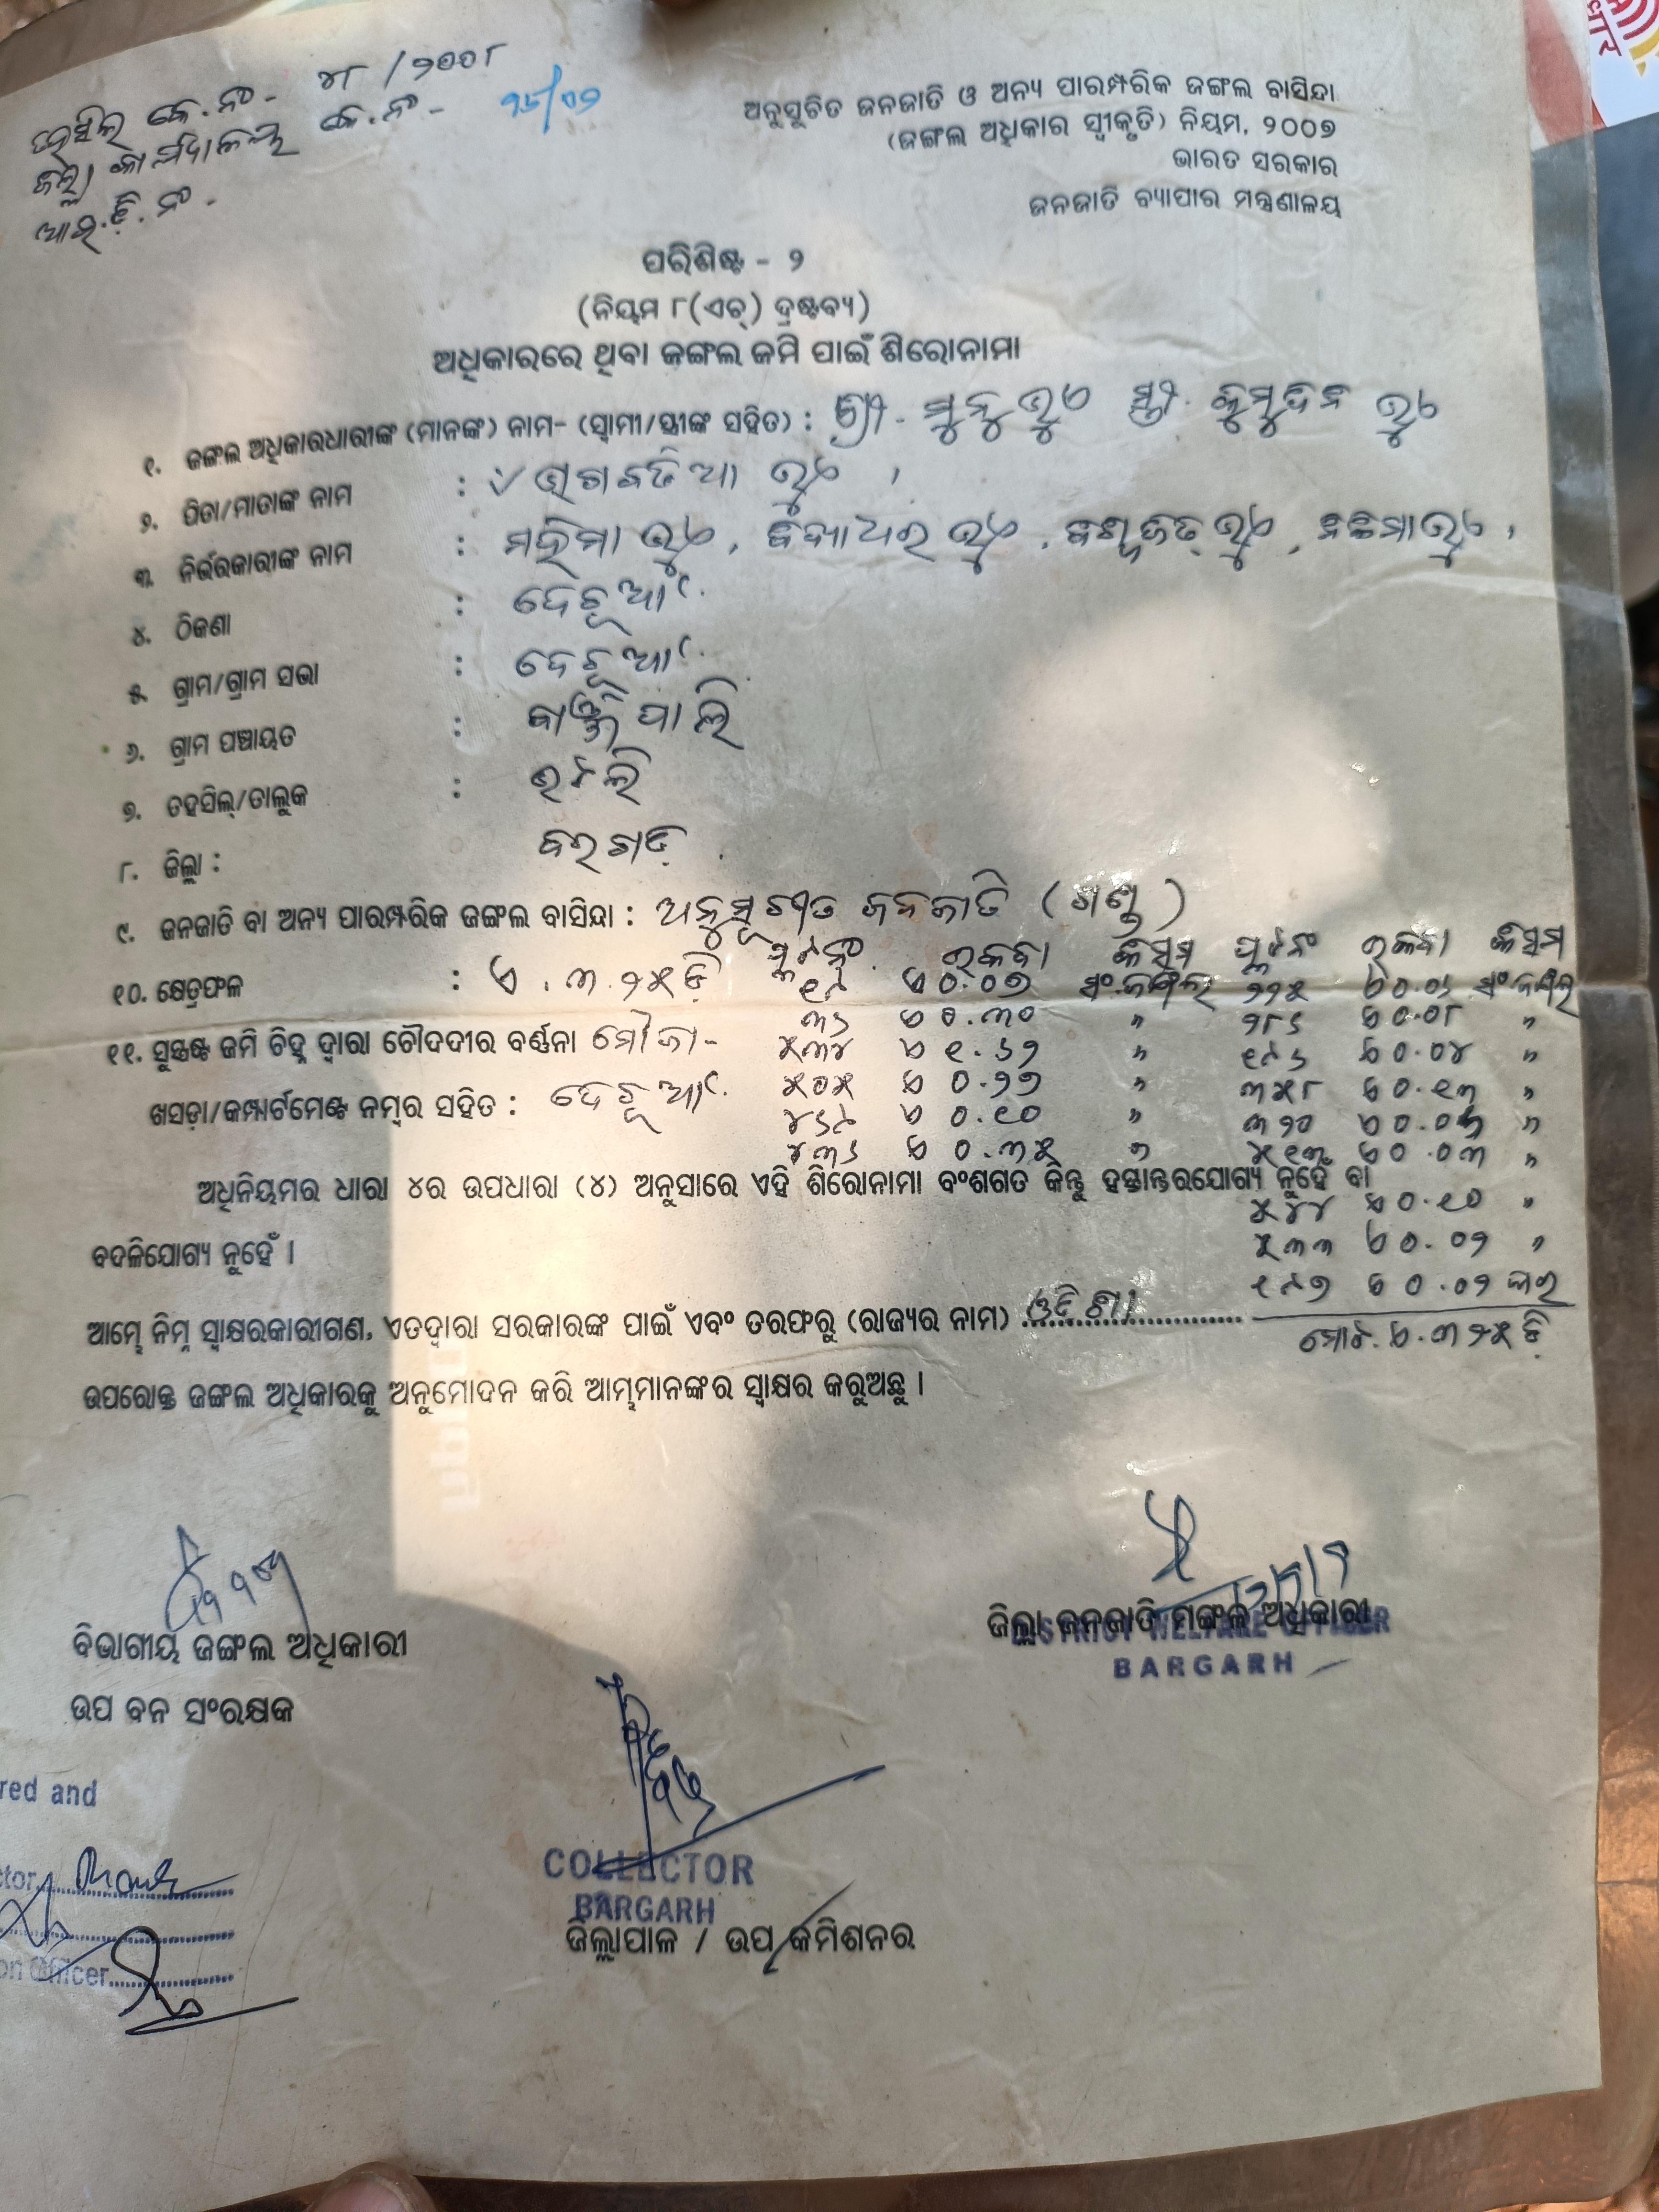 ତହସିଲ କେ.ନଂ- ୪୮/୨୦୦୮
ଜିଲ୍ଲା କାର୍ଯ୍ୟାଳୟ କେ.ନଂ-
ଆର.ଟି.ନଂ.
ଅନୁସୂଚିତ ଜନଜାତି ଓ ଅନ୍ୟ ପାରମ୍ପରିକ ଜଙ୍ଗଲ ବାସିନ୍ଦା
(ଜଙ୍ଗଲ ଅଧିକାର ସ୍ୱୀକୃତି) ନିୟମ, ୨୦୦୭
ଭାରତ ସରକାର
ଜନଜାତି ବ୍ୟାପାର ମନ୍ତ୍ରଣାଳୟ
ପରିଶିଷ୍ଟ - ୨
(ନିୟମ ୮(ଏଚ୍) ଦ୍ରଷ୍ଟବ୍ୟ)
ଅଧିକାରରେ ଥିବା ଜଙ୍ଗଲ ଜମି ପାଇଁ ଶିରୋନାମା
୧. ଜଙ୍ଗଲ ଅଧିକାରଧାରୀଙ୍କ (ମାନଙ୍କ) ନାମ- (ସ୍ୱାମୀ/ସ୍ତ୍ରୀଙ୍କ ସହିତ) : ଶ୍ରୀ. ମୁନୁ ଭୁଏ ସ୍ତ୍ରୀ.
୨. ପିତା/ମାତାଙ୍କ ନାମ : ଭୁଏ
୩. ନିର୍ଭରକାରୀଙ୍କ ନାମ : ମହିମା ଭୁଏ, ବିଦ୍ୟାଧର ଭୁଏ,
୪. ଠିକଣା : ଦେଚୂଆଁ
୫. ଗ୍ରାମ/ଗ୍ରାମ ସଭା : ଦେଚୂଆଁ
୬. ଗ୍ରାମ ପଞ୍ଚାୟତ :
୭. ତହସିଲ୍/ତାଲୁକ : ଭଟଲି
୮. ଜିଲ୍ଲା : ବରଗଡ
୯. ଜନଜାତି ବା ଅନ୍ୟ ପାରମ୍ପରିକ ଜଙ୍ଗଲ ବାସିନ୍ଦା : ଅନୁସୂଚୀତ ଜନଜାତି (ଗଣ୍ଡ)
୧୦. କ୍ଷେତ୍ରଫଳ : ଏ.୩.୨୫ଡି ପ୍ଲଟନଂ ରକବା କିସମ ପ୍ଲଟନଂ ରକବା କିସମ
୧୯ ଏ ୦.୦୭ ସଂ.ଜଙ୍ଗଲ ୨୨୫ ଏ ୦.୦୬ ସଂ.ଜଙ୍ଗଲ
୩୬ ଏ ୦.୩୦ " ୨୮୬ ଏ ୦.୦୮ "
୧୧. ସୁସ୍ପଷ୍ଟ ଜମି ଚିହ୍ନ ଦ୍ୱାରା ଚୌହଦୀର ବର୍ଣ୍ଣନା ମୌଜା- ୫୩୪ ଏ ୧.୬୨ " ୧୯୬ ଏ ୦.୦୪ "
ଖସଡ଼ା/କମ୍ପାର୍ଟମେଣ୍ଟ ନମ୍ବର ସହିତ : ଦେଚୂଆଁ ୫୦୫ ଏ ୦.୨୭ " ୩୫୮ ଏ ୦.୧୩ "
୪୬୯ ଏ ୦.୧୦ " ୩୨୦ "
୪୩୬ ଏ ୦.୩୫ " ୫୧୩ ଏ ୦.୦୩ "
ଅଧିନିୟମର ଧାରା ୪ର ଉପଧାରା (୪) ଅନୁସାରେ ଏହି ଶିରୋନାମା ବଂଶଗତ କିନ୍ତୁ ହସ୍ତାନ୍ତରଯୋଗ୍ୟ ନୁହେଁ ବା
୫୪୪ ଏ ୦.୧୦ "
ବଦଳିଯୋଗ୍ୟ ନୁହେଁ । ୫୩୩ ଏ ୦.୦୨ "
୧୯୭ ଏ ୦.୦୨
ଆମ୍ଭେ ନିମ୍ନ ସ୍ୱାକ୍ଷରକାରୀଗଣ, ଏତଦ୍ୱାରା ସରକାରଙ୍କ ପାଇଁ ଏବଂ ତରଫରୁ (ରାଜ୍ୟର ନାମ) ଓଡିଶା
ମୋଟ.ଏ.୩.୨୫ଡି
ଉପରୋକ୍ତ ଜଙ୍ଗଲ ଅଧିକାରକୁ ଅନୁମୋଦନ କରି ଆମ୍ଭମାନଙ୍କର ସ୍ୱାକ୍ଷର କରୁଅଛୁ ।
ବିଭାଗୀୟ ଜଙ୍ଗଲ ଅଧିକାରୀ
ଉପ ବନ ସଂରକ୍ଷକ
ଜିଲ୍ଲା ଜନଜାତି ମଙ୍ଗଳ ଅଧିକାରୀ
DISTRICT WELFARE OFFICER
BARGARH
red and
ctor
on Officer
COLLECTOR
BARGARH
ଜିଲ୍ଲାପାଳ / ଉପ କମିଶନର